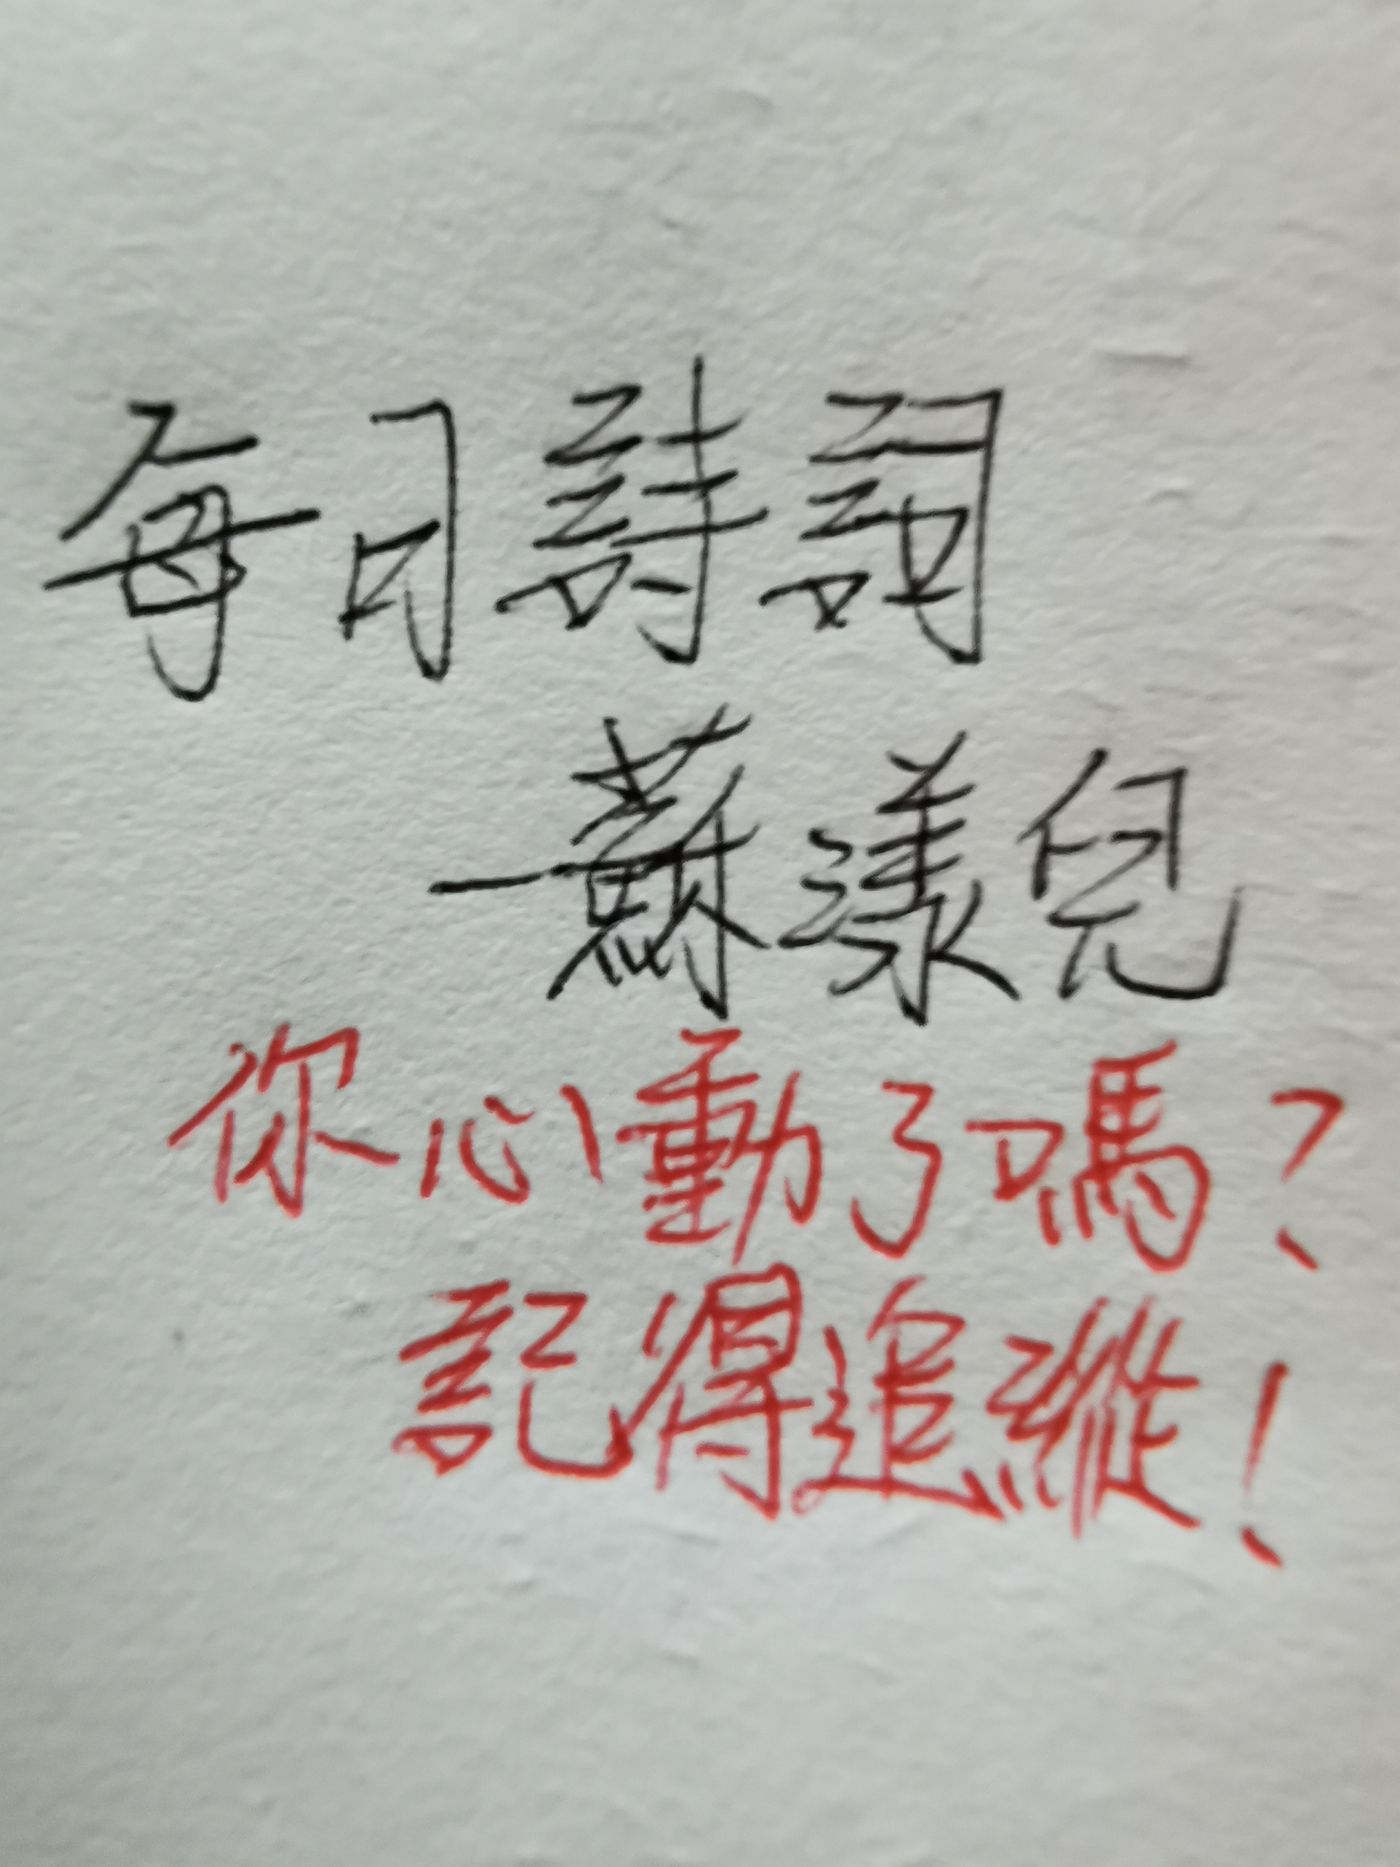 每日詩詞
—蘇漾兒
你心動了嗎?
記得追縱!